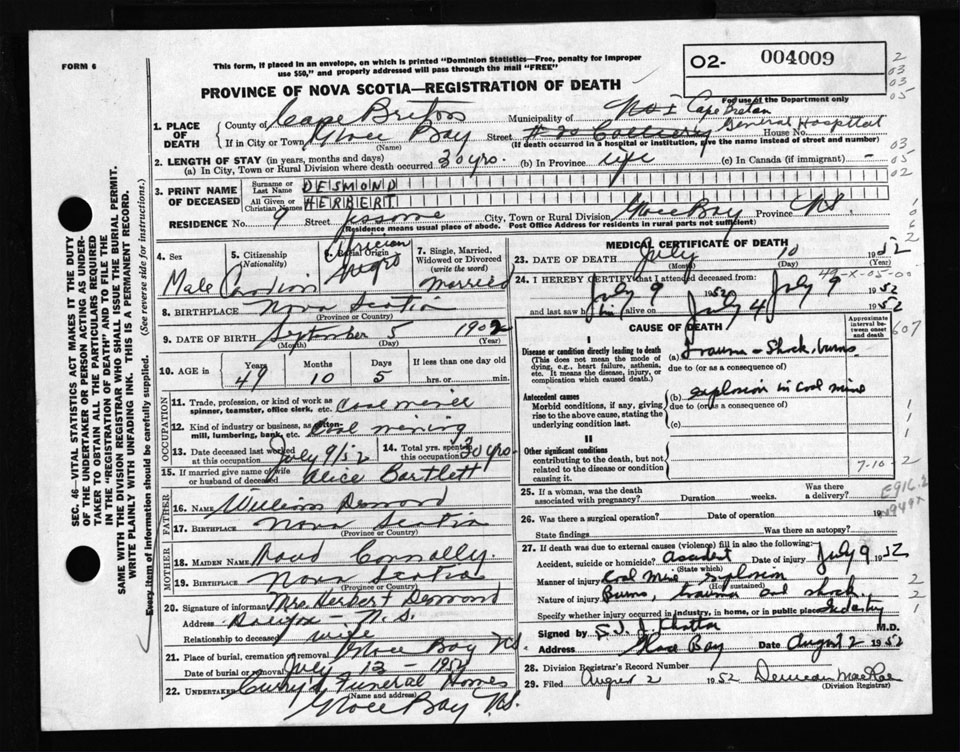 FORM 6
This form, if placed in an envelope, on which is printed "Dominion Statistics—Free, penalty for improper
use $50," and properly addressed will pass through the mail "FREE"
O2- 004009
For use of the Department only
PROVINCE OF NOVA SCOTIA—REGISTRATION OF DEATH
1. PLACE OF DEATH
County of Cape Breton Municipality of No 1 Cape Breton
If in City or Town Glace Bay Street #20 Colliery General Hospital House No.
(Name) (If death occurred in a hospital or institution, give the name instead of street and number)
2. LENGTH OF STAY (in years, months and days)
(a) In City, Town or Rural Division where death occurred 30 yrs. (b) In Province life (c) In Canada (if immigrant) -
3. PRINT NAME OF DECEASED
Surname or Last Name DESMOND
All Given or Christian Names HERBERT
RESIDENCE No. 9 Street Jessome City, Town or Rural Division Glace Bay Province N.S.
(Residence means usual place of abode. Post Office Address for residents in rural parts not sufficient)
4. Sex Male
5. Citizenship (Nationality) Canadian
6. Racial Origin Negro
7. Single, Married, Widowed or Divorced (write the word) Married
8. BIRTHPLACE Nova Scotia
(Province or Country)
9. DATE OF BIRTH September 5 1902
(Month) (Day)
10. AGE in Years 49 Months 10 Days 5 If less than one day
hrs. or min.
OCCUPATION
11. Trade, profession, or kind of work as spinner, teamster, office clerk, etc. Coal miner
12. Kind of industry or business, as cotton-mill, lumbering, bank, etc. Coal mining
13. Date deceased last worked at this occupation July 9/52
14. Total yrs. spent in this occupation 30 yrs.
15. If married give name of wife or husband of deceased Alice Bartlett
FATHER
16. NAME William Desmond
17. BIRTHPLACE Nova Scotia
(Province or Country)
MOTHER
18. MAIDEN NAME Connolly
19. BIRTHPLACE Nova Scotia
(Province or Country)
20. Signature of informant Mrs Herbert Desmond
Address Halifax - N.S.
Relationship to deceased wife
21. Place of burial, cremation or removal Glace Bay N.S.
Date of burial or removal July 13 - 1952
22. UNDERTAKER Curry's Funeral Homes
(Name and address)
Glace Bay N.S.
MEDICAL CERTIFICATE OF DEATH
23. DATE OF DEATH July 10 1952
(Month) (Day)
24. I HEREBY CERTIFY that I attended deceased from:
49-X-05-00
July 9 1952 to July 9 1952
and last saw him alive on July 1952
CAUSE OF DEATH
Approximate interval between onset and death
607
I
Disease or condition directly leading to death (a) Trauma - Shock, burns
(This does not mean the mode of dying, e.g., heart failure, asthenia, etc. It means the disease, injury, or complication which caused death.)
due to (or as a consequence of)
Antecedent causes (b) explosion in coal mine
Morbid conditions, if any, giving rise to the above cause, stating the underlying condition last.
due to (or as a consequence of)
(c)
II
Other significant conditions
contributing to the death, but not related to the disease or condition causing it.
7-16-2
25. If a woman, was the death associated with pregnancy? Duration weeks. Was there a delivery?
E916.2
26. Was there a surgical operation? Date of operation 19
State findings Was there an autopsy?
27. If death was due to external causes (violence) fill in also the following:
Accident, suicide or homicide? accident Date of injury July 9 1952
(State which)
Manner of injury Coal Mine explosion
(How sustained)
Nature of injury Burns, trauma and shock.
Specify whether injury occurred in industry, in home, or in public place Industry
Signed by M.D.
Address Glace Bay Date August 2 1952
28. Division Registrar's Record Number
29. Filed August 2 1952 Duncan MacRae
(Division Registrar)
SEC. 46—VITAL STATISTICS ACT MAKES IT THE DUTY
OF THE UNDERTAKER OR PERSON ACTING AS UNDER-
TAKER TO OBTAIN ALL THE PARTICULARS REQUIRED
IN THE "REGISTRATION OF DEATH" AND TO FILE THE
SAME WITH THE DIVISION REGISTRAR WHO SHALL ISSUE THE BURIAL PERMIT.
WRITE PLAINLY WITH UNFADING INK. THIS IS A PERMANENT RECORD.
Every item of information should be carefully supplied. (See reverse side for instructions.)